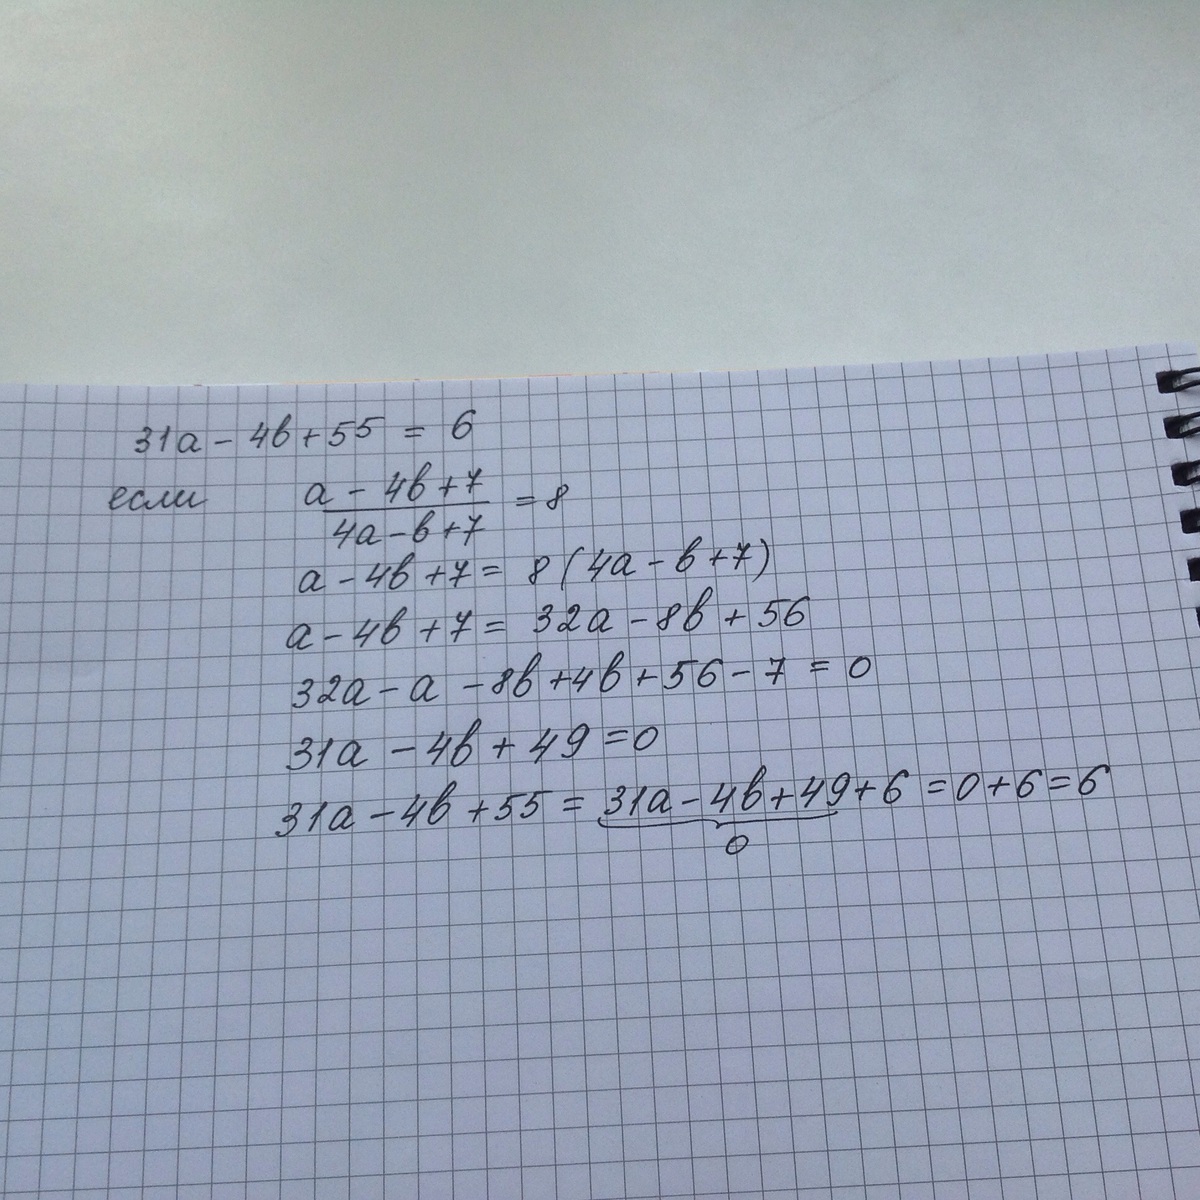 31a - 4b + 55 = 6
если (a - 4b + 7)/(4a - b + 7) = 8
a - 4b + 7 = 8(4a - b + 7)
a - 4b + 7 = 32a - 8b + 56
32a - a - 8b + 4b + 56 - 7 = 0
31a - 4b + 49 = 0
31a - 4b + 55 = 31a - 4b + 49 + 6 = 0 + 6 = 6
0